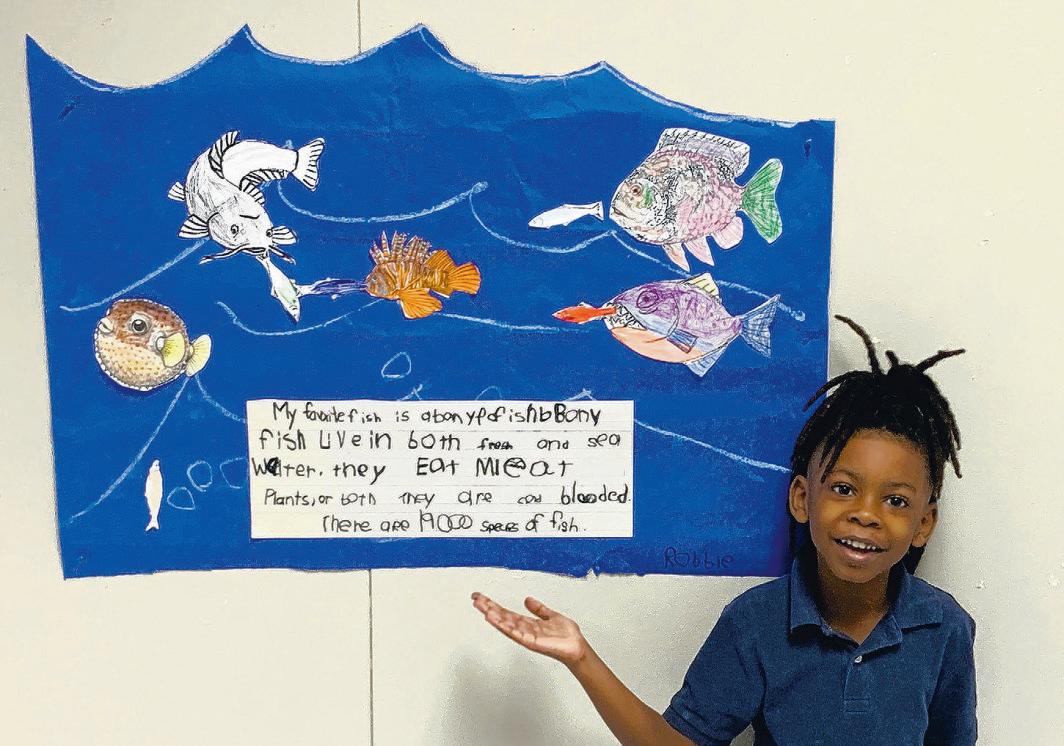 My favoite fish is a bonypdfishb Bony
fish Live in both fresh and sea
Water. they Eat Meat
Plants, or both they are cod blooded.
There are 19000 species of fish.
Robbie